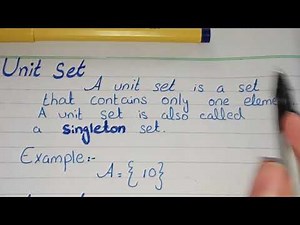 Unit Set
A unit set is a set
that contains only one eleme
A unit set is also called
a singleton set.
Example:-
A = { 10 }